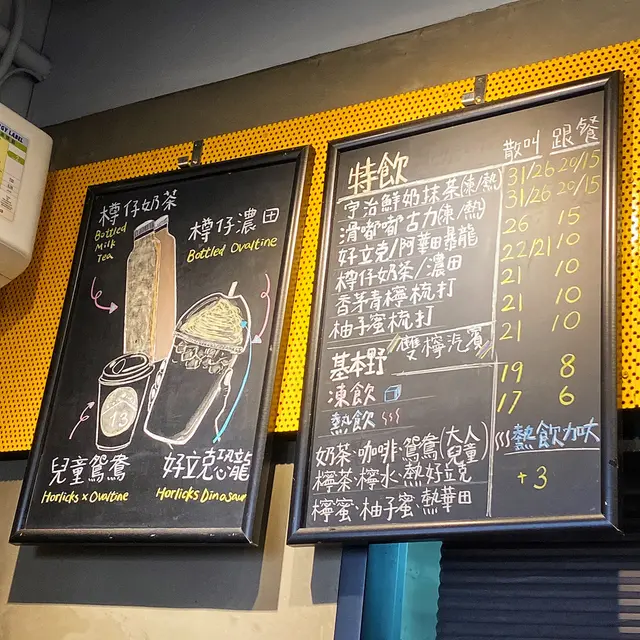 樽仔奶茶
Bottled
Milk
Tea
樽仔濃田
Bottled Ovaltine
13
兒童鴛鴦
Horlicks x Ovaltine
好立克恐龍
Horlicks Dinosaur
特飲 散叫 跟餐
宇治鮮奶抹茶(凍/熱) 31/26 20/15
滑嘟嘟古力(凍/熱) 31/26 20/15
好立克/阿華田暴龍 26 15
樽仔奶茶/濃田 22/21 10
香茅青檸梳打 21 10
柚子蜜梳打 21 10
雙檸汽賓 21 10
基本野
凍飲 19 8
熱飲 17 6
奶茶·咖啡·鴛鴦(大人/兒童)
檸茶·檸水·熱好立克
檸蜜·柚子蜜·熱華田
熱飲加大
+3